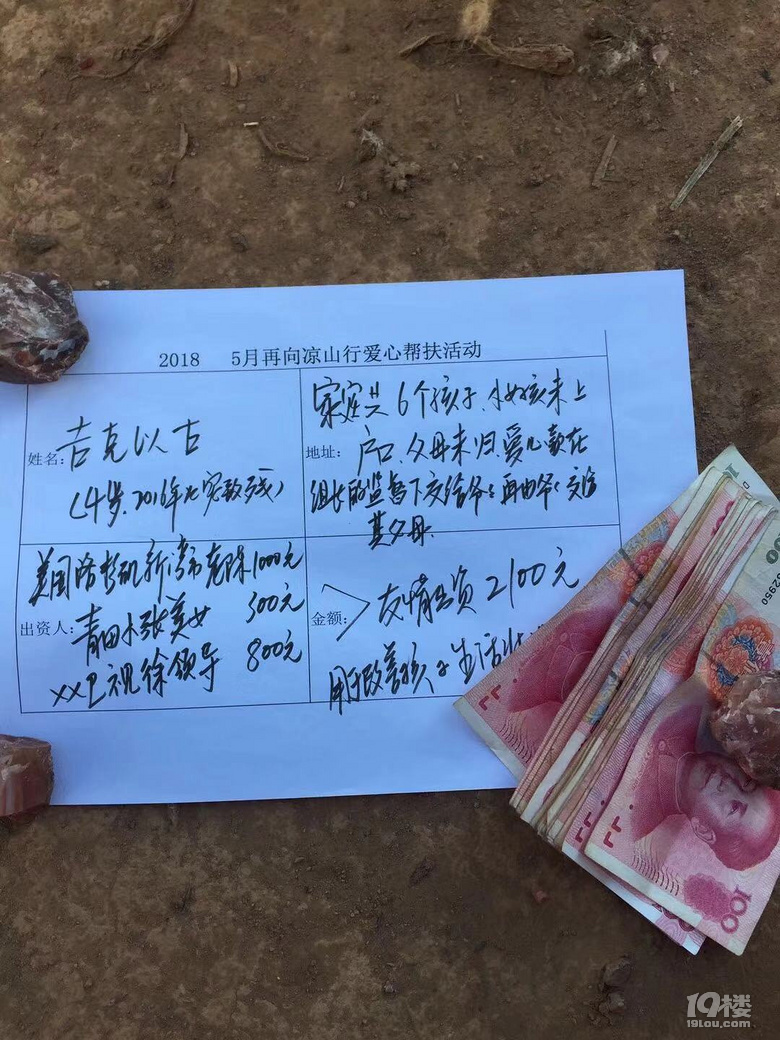 2018 5月再向凉山行爱心帮扶活动
姓名:
吉克以古
(4岁、2016年
致残)
地址:
家庭共6个孩子、小女孩未上
户口、父母未归、爱心款在
组长的监督下交给爷爷再由爷爷交给
其父母.
出资人:
美国洛杉矶新 1000元
青田小张美女 300元
XX卫视徐领导 800元
金额:
友情出资2100元
用于改善孩子生活
100
2950
19楼
19lou.com